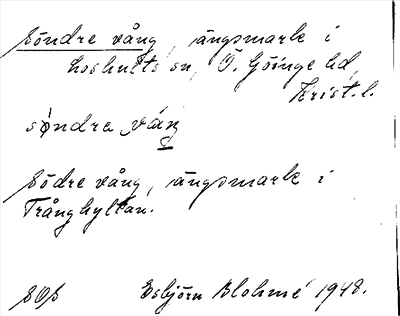 Söndre vång, ängsmark i
Loshults sn, Ö. Göinge hd,
Krist. l.
söndre váŋ
Södre vång, ängsmark i
Trånghyltan.
Esbjörn Blohmé 1948.